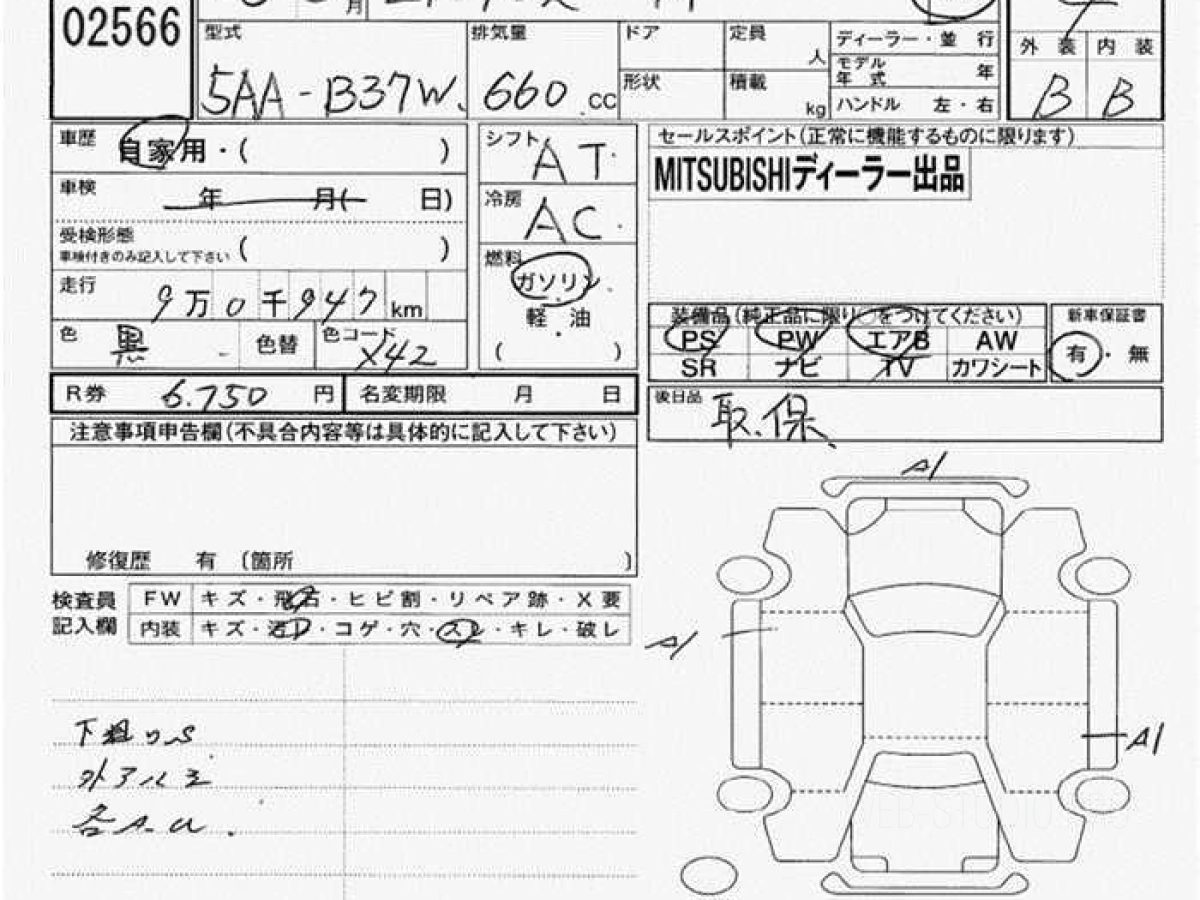 02566
型式
5AA-B37W
排気量
660 cc
ドア
形状
定員
人
積載
kg
ディーラー・並 行
モデル年 式 年
ハンドル 左・右
外 装
内 装
B
B
車歴
自家用・( )
車検
年 月( 日)
受検形態
車検付きのみ記入して下さい
( )
走行
9万0千947km
色
黒
色替
色コード
X42
R券 6.750 円
名変期限 月 日
シフト
AT
冷房
AC
燃料
ガソリン
軽・油
( )
セールスポイント(正常に機能するものに限ります)
MITSUBISHIディーラー出品
装備品(純正品に限り○をつけてください)
PS PW エアB AW
SR ナビ TV カワシート
新車保証書
有・無
後日品
取.保
注意事項申告欄(不具合内容等は具体的に記入して下さい)
修復歴 有 〔箇所 〕
検査員
記入欄
FW キズ・飛石・ヒビ割・リペア跡・X要
内装 キズ・汚レ・コゲ・穴・スレ・キレ・破レ
A1
A1
A1